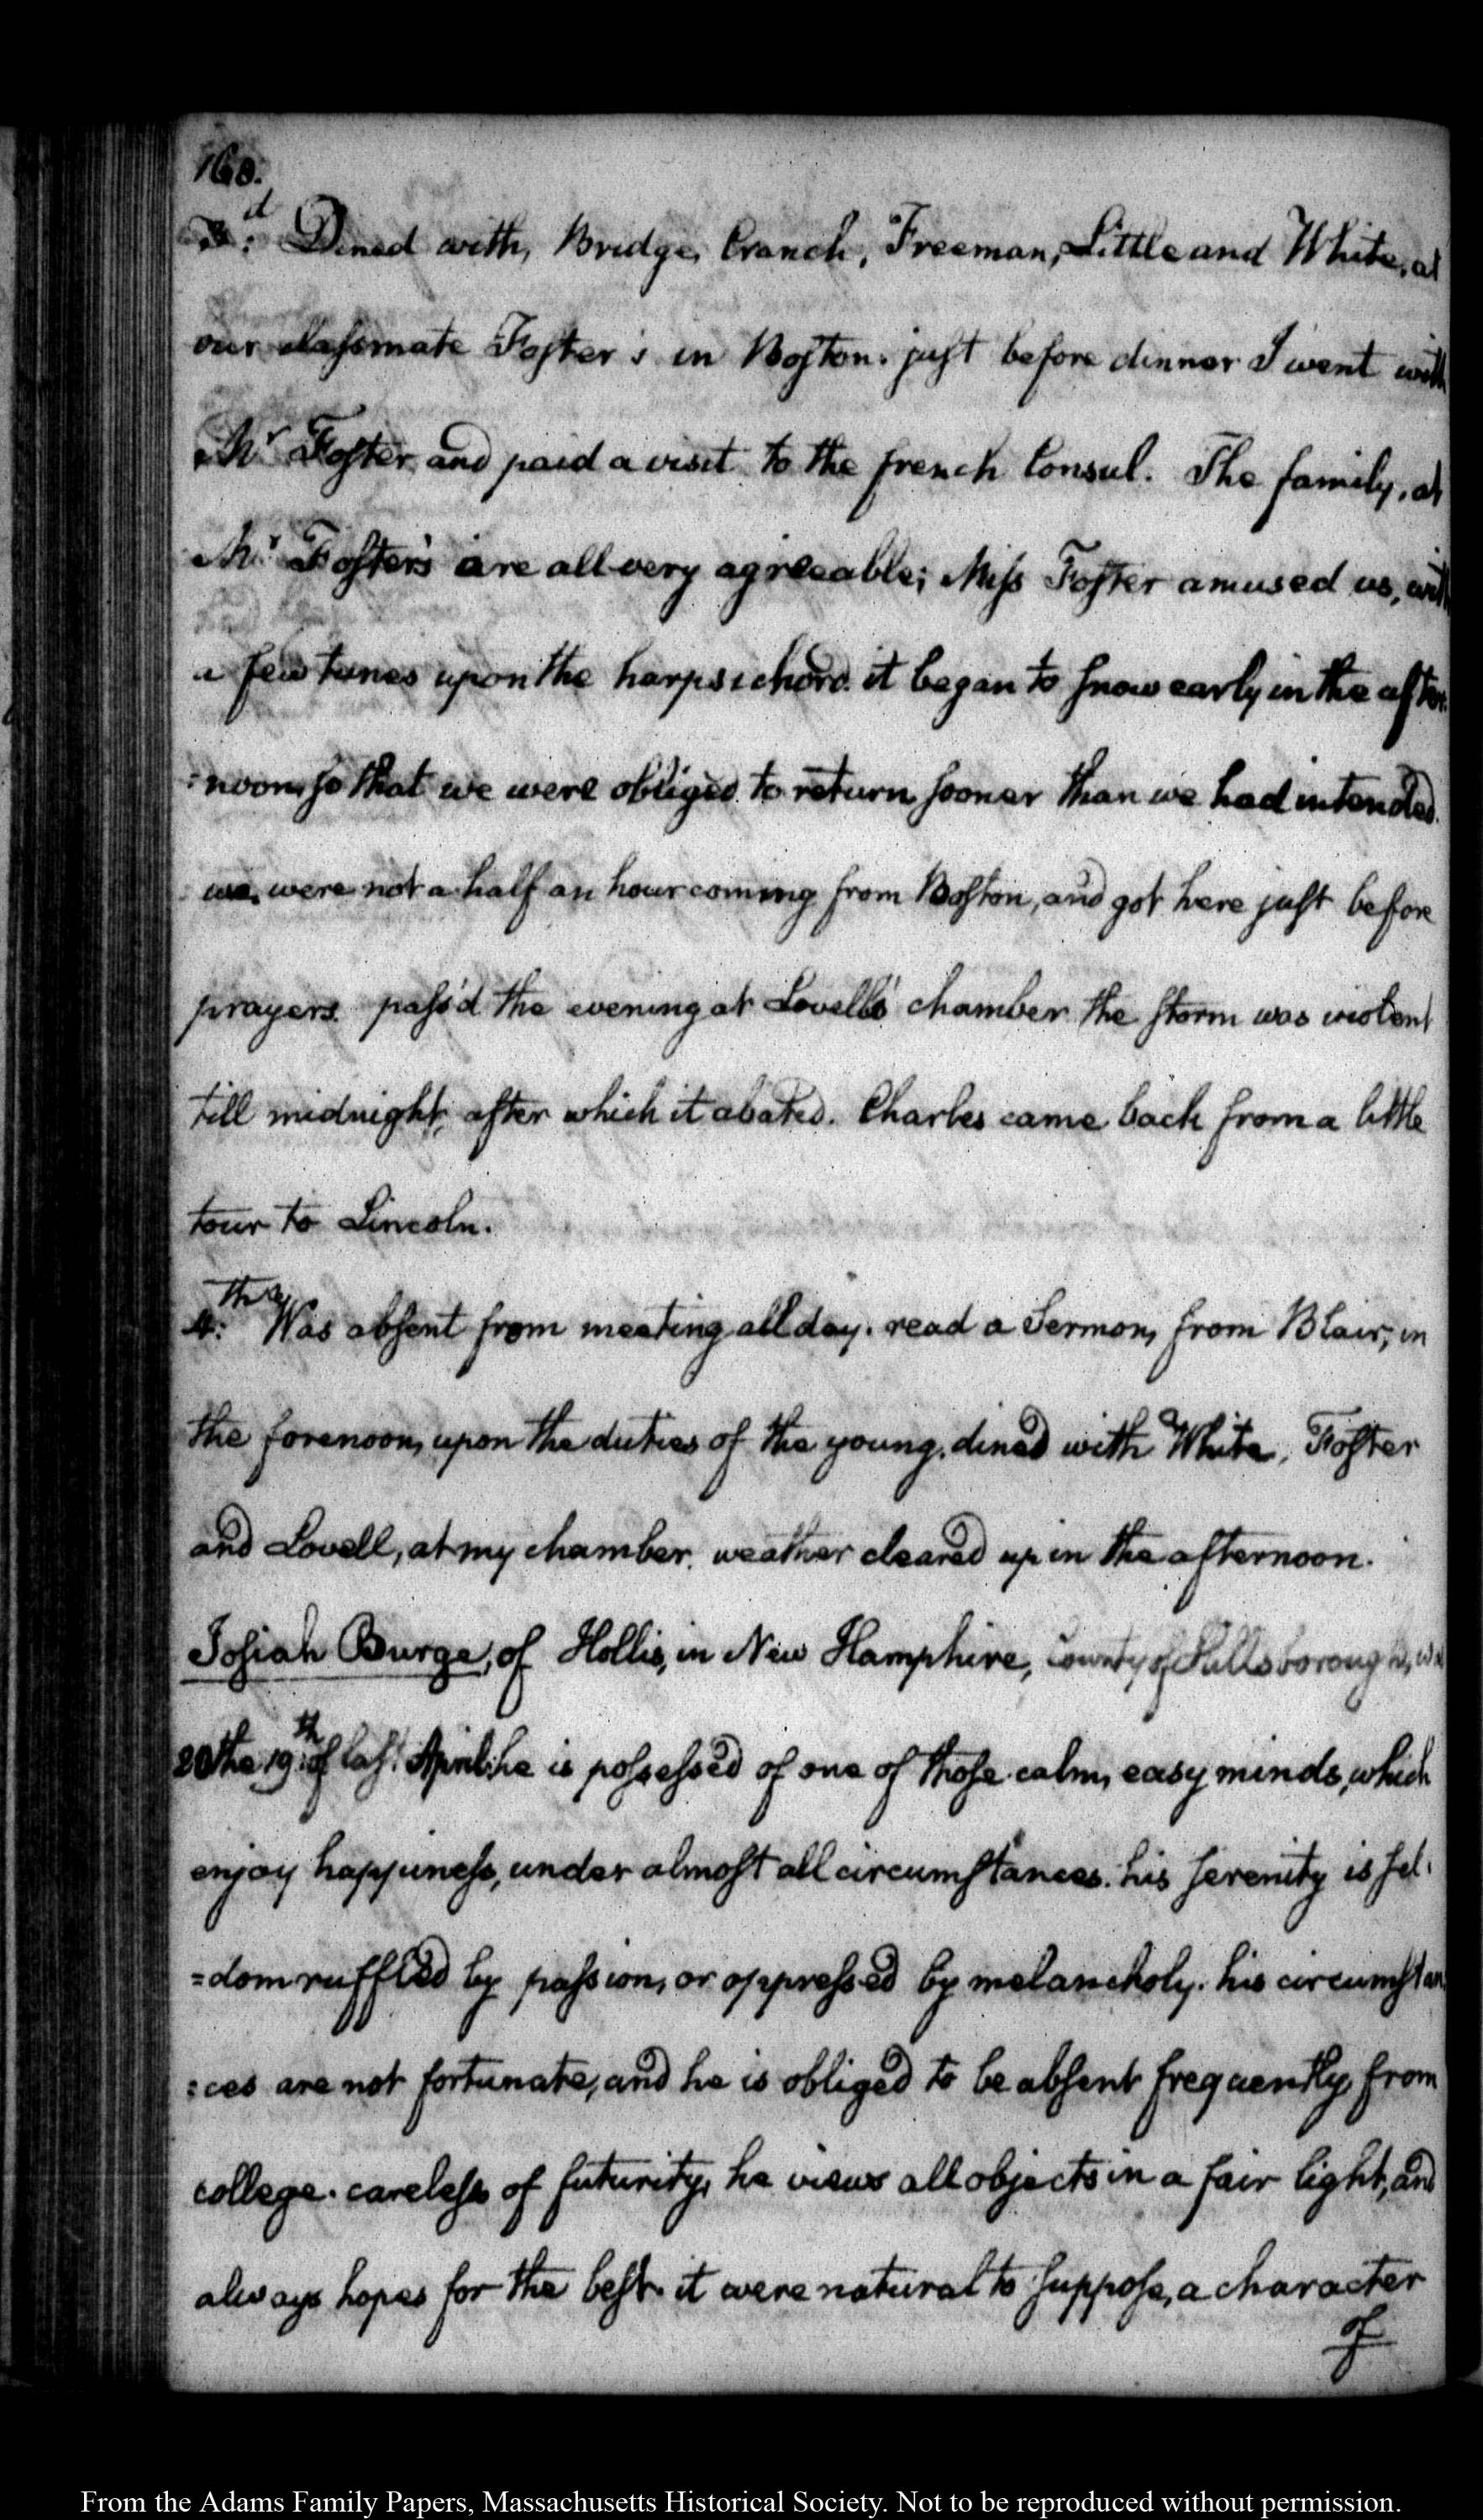 160.
3.d Dined with, Bridge, Cranch, Freeman, Little and White, at
our classmate Foster's in Boston. just before dinner I went with
Mr. Foster and paid a visit to the french Consul. The family, at
Mr. Foster's are all very agreeable; Miss Foster amused us, with
a few tunes upon the harpsichord. it began to snow early in the after
=noon, so that we were obliged to return sooner than we had intended.
we were not a half an hour coming from Boston, and got here just before
prayers. pass'd the evening at Lovell's chamber. the storm was violent
till midnight, after which it abated. Charles came back from a little
tour to Lincoln.
4.th Was absent from meeting all day. read a Sermon, from Blair, in
the forenoon, upon the duties of the young. dined with White, Foster
and Lovell, at my chamber. weather cleared up in the afternoon.
Josiah Burge, of Hollis, in New Hampshire, County of Hillsborough, was
20 the 19.th of last April: he is possessed of one of those calm, easy minds, which
enjoy happiness, under almost all circumstances. his serenity is sel-
=dom ruffled by passion, or oppressed by melancholy. his circumstan
=ces are not fortunate, and he is obliged to be absent frequently, from
college. careless of futurity, he views all objects in a fair light, and
always hopes for the best. it were natural to suppose, a character
of
From the Adams Family Papers, Massachusetts Historical Society. Not to be reproduced without permission.